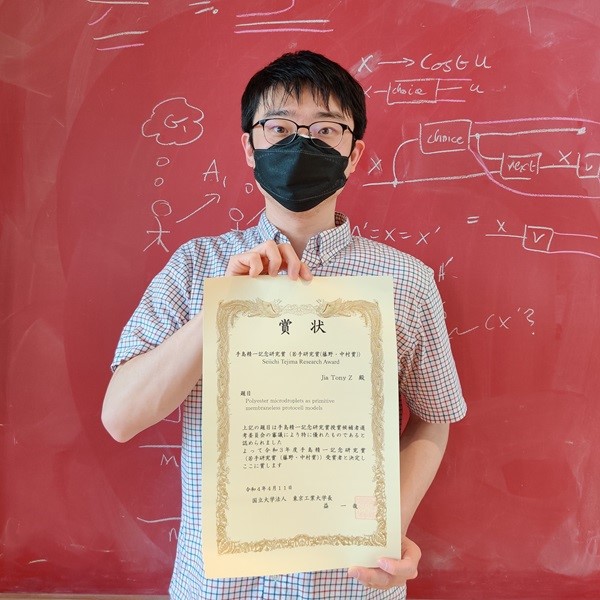 x → Cost u
choice u
G₁
choice
A₁
x
react x v
A'=x=x'
= x v
A'
cx'?
賞状
手島精一記念研究賞(若手研究賞(藤野・中村賞))
Seiichi Tejima Research Award
Jia Tony Z 殿
題目
Polyester microdroplets as primitive
membraneless protocell models
上記の題目は手島精一記念研究賞授賞候補者選
考委員会の審議により特に優れたものであると
認められました
よって令和3年度手島精一記念研究賞
(若手研究賞(藤野・中村賞))受賞者と決定し
ここに賞します
令和4年4月11日
国立大学法人 東京工業大学長
益 一哉
m